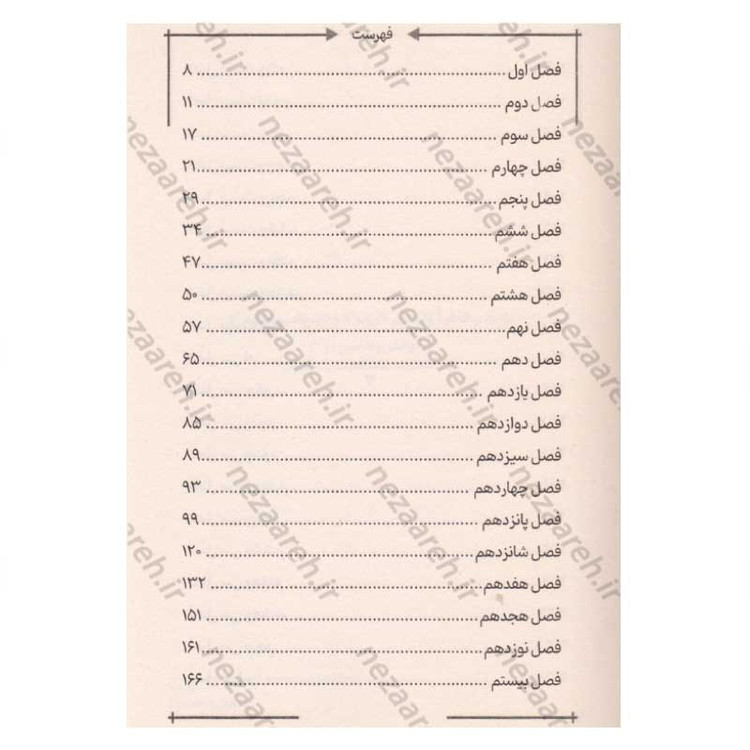 فهرست
فصل اول ........ ۸
فصل دوم ........ ۱۱
فصل سوم ........ ۱۷
فصل چهارم ........ ۲۱
فصل پنجم ........ ۲۹
فصل ششم ........ ۳۴
فصل هفتم ........ ۴۷
فصل هشتم ........ ۵۰
فصل نهم ........ ۵۷
فصل دهم ........ ۶۵
فصل یازدهم ........ ۷۱
فصل دوازدهم ........ ۸۵
فصل سیزدهم ........ ۸۹
فصل چهاردهم ........ ۹۳
فصل پانزدهم ........ ۹۹
فصل شانزدهم ........ ۱۲۰
فصل هفدهم ........ ۱۳۲
فصل هجدهم ........ ۱۵۱
فصل نوزدهم ........ ۱۶۱
فصل بیستم ........ ۱۶۶
nezaareh.ir